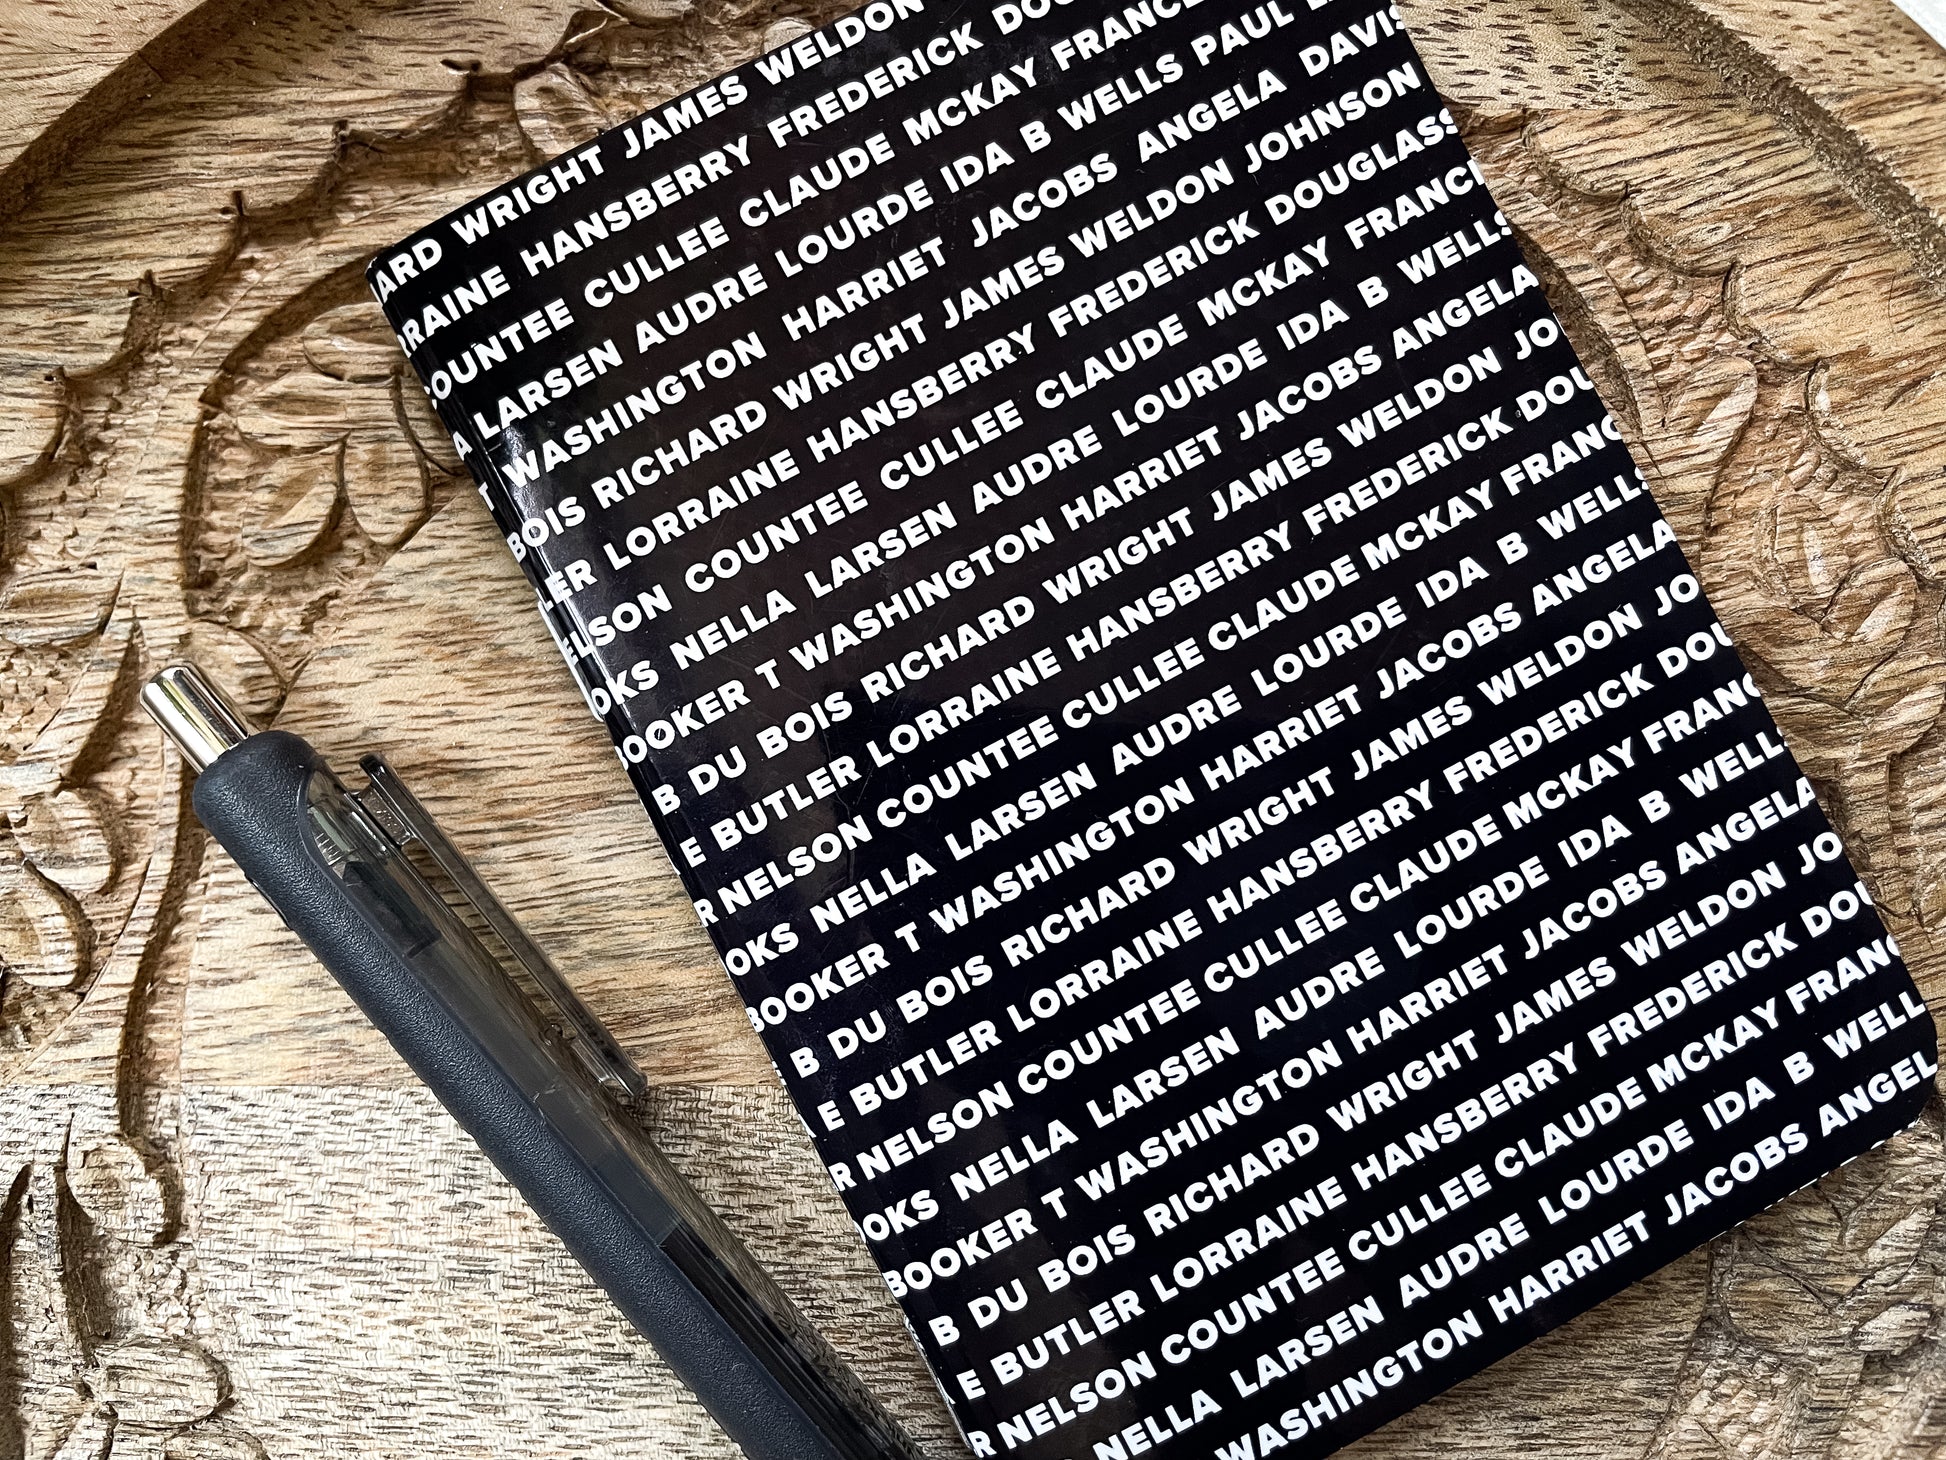 ARD WRIGHT JAMES WELDON
RRAINE HANSBERRY FREDERICK DOU
COUNTEE CULLEE CLAUDE MCKAY FRANCE
A LARSEN AUDRE LOURDE IDA B WELLS PAUL
T WASHINGTON HARRIET JACOBS ANGELA DAVIS
BOIS RICHARD WRIGHT JAMES WELDON JOHNSON
LER LORRAINE HANSBERRY FREDERICK DOUGLASS
ELSON COUNTEE CULLEE CLAUDE MCKAY FRANCE
OKS NELLA LARSEN AUDRE LOURDE IDA B WELLS
BOOKER T WASHINGTON HARRIET JACOBS ANGELA
B DU BOIS RICHARD WRIGHT JAMES WELDON JO
E BUTLER LORRAINE HANSBERRY FREDERICK DOU
R NELSON COUNTEE CULLEE CLAUDE MCKAY FRANC
OKS NELLA LARSEN AUDRE LOURDE IDA B WELLS
BOOKER T WASHINGTON HARRIET JACOBS ANGELA
B DU BOIS RICHARD WRIGHT JAMES WELDON JO
E BUTLER LORRAINE HANSBERRY FREDERICK DOU
R NELSON COUNTEE CULLEE CLAUDE MCKAY FRANC
OKS NELLA LARSEN AUDRE LOURDE IDA B WELLS
BOOKER T WASHINGTON HARRIET JACOBS ANGELA
B DU BOIS RICHARD WRIGHT JAMES WELDON JO
E BUTLER LORRAINE HANSBERRY FREDERICK DOU
R NELSON COUNTEE CULLEE CLAUDE MCKAY FRANC
NELLA LARSEN AUDRE LOURDE IDA B WELL
WASHINGTON HARRIET JACOBS ANGEL